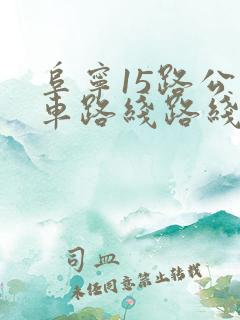 阜宁15路公
車路綫路綫
司血
未经同意禁止转载